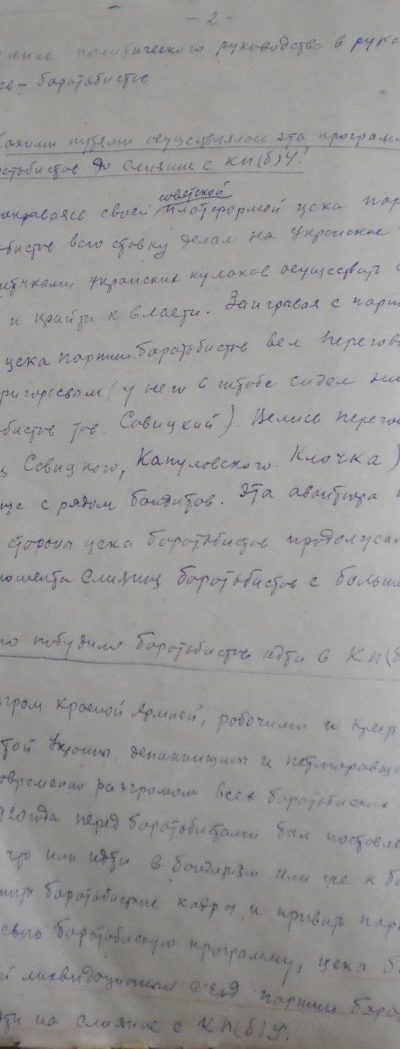 - 2 -
политического руководства в рука
боротьбистов
какими путями осуществлялось эта програм
до слияния с КП(б)У?
советской
своей платформой цека пар
всю ставку делал на украинские
украинских кулаков осуществить
и прийти к власти. Заигрывая с парт
цека партии боротьбистов вел перегов
(у него в штабе сидел
тов. Савицкий). Велись перегов
Савицкого, Капуловского. Клочка)
с рядом бандитов. Эта авантюра
стороны цека боротьбистов продолжал
момента слияния боротьбистов с больше
побудило боротьбистов идти в КП(б
Красной Армией, рабочими и крест
деникинщины и петлюровщи
разгромом всех боротьбиских
920 года перед боротьбистами был поставле
или идти в бандитизм или же к бо
боротьбиские кадры и привить пар
свою боротьбискую программу, цека б
ликвидационный с'езд партии борот
на слияние с КП(б)У.